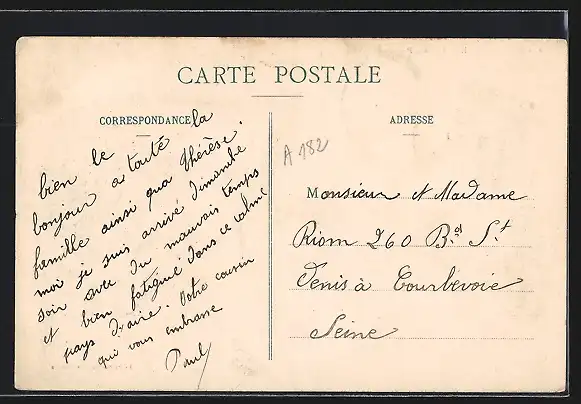 CARTE POSTALE
CORRESPONDANCE
bien le
bonjour a touté la
famille ainsi qua thérèse.
moi je suis arrivé dimanche
soir avec du mauvais temps
et bien fatigué dans ce calme
pays d'aire. Votre cousin
qui vous embrasse
Paul
A 182
ADRESSE
Monsieur et Madame
Riom 260 Bd St
Denis à Courbevoie
Seine